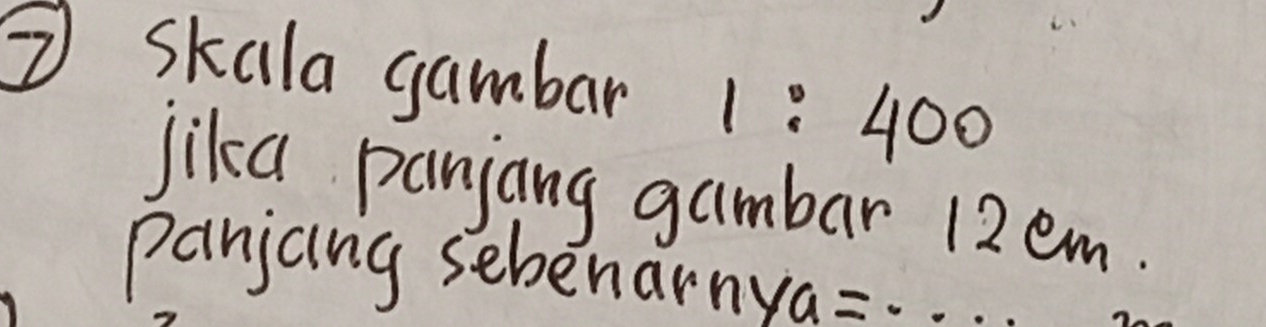 ⑦ Skala gambar 1 : 400
jika panjang gambar 12 cm.
panjang sebenarnya = ....